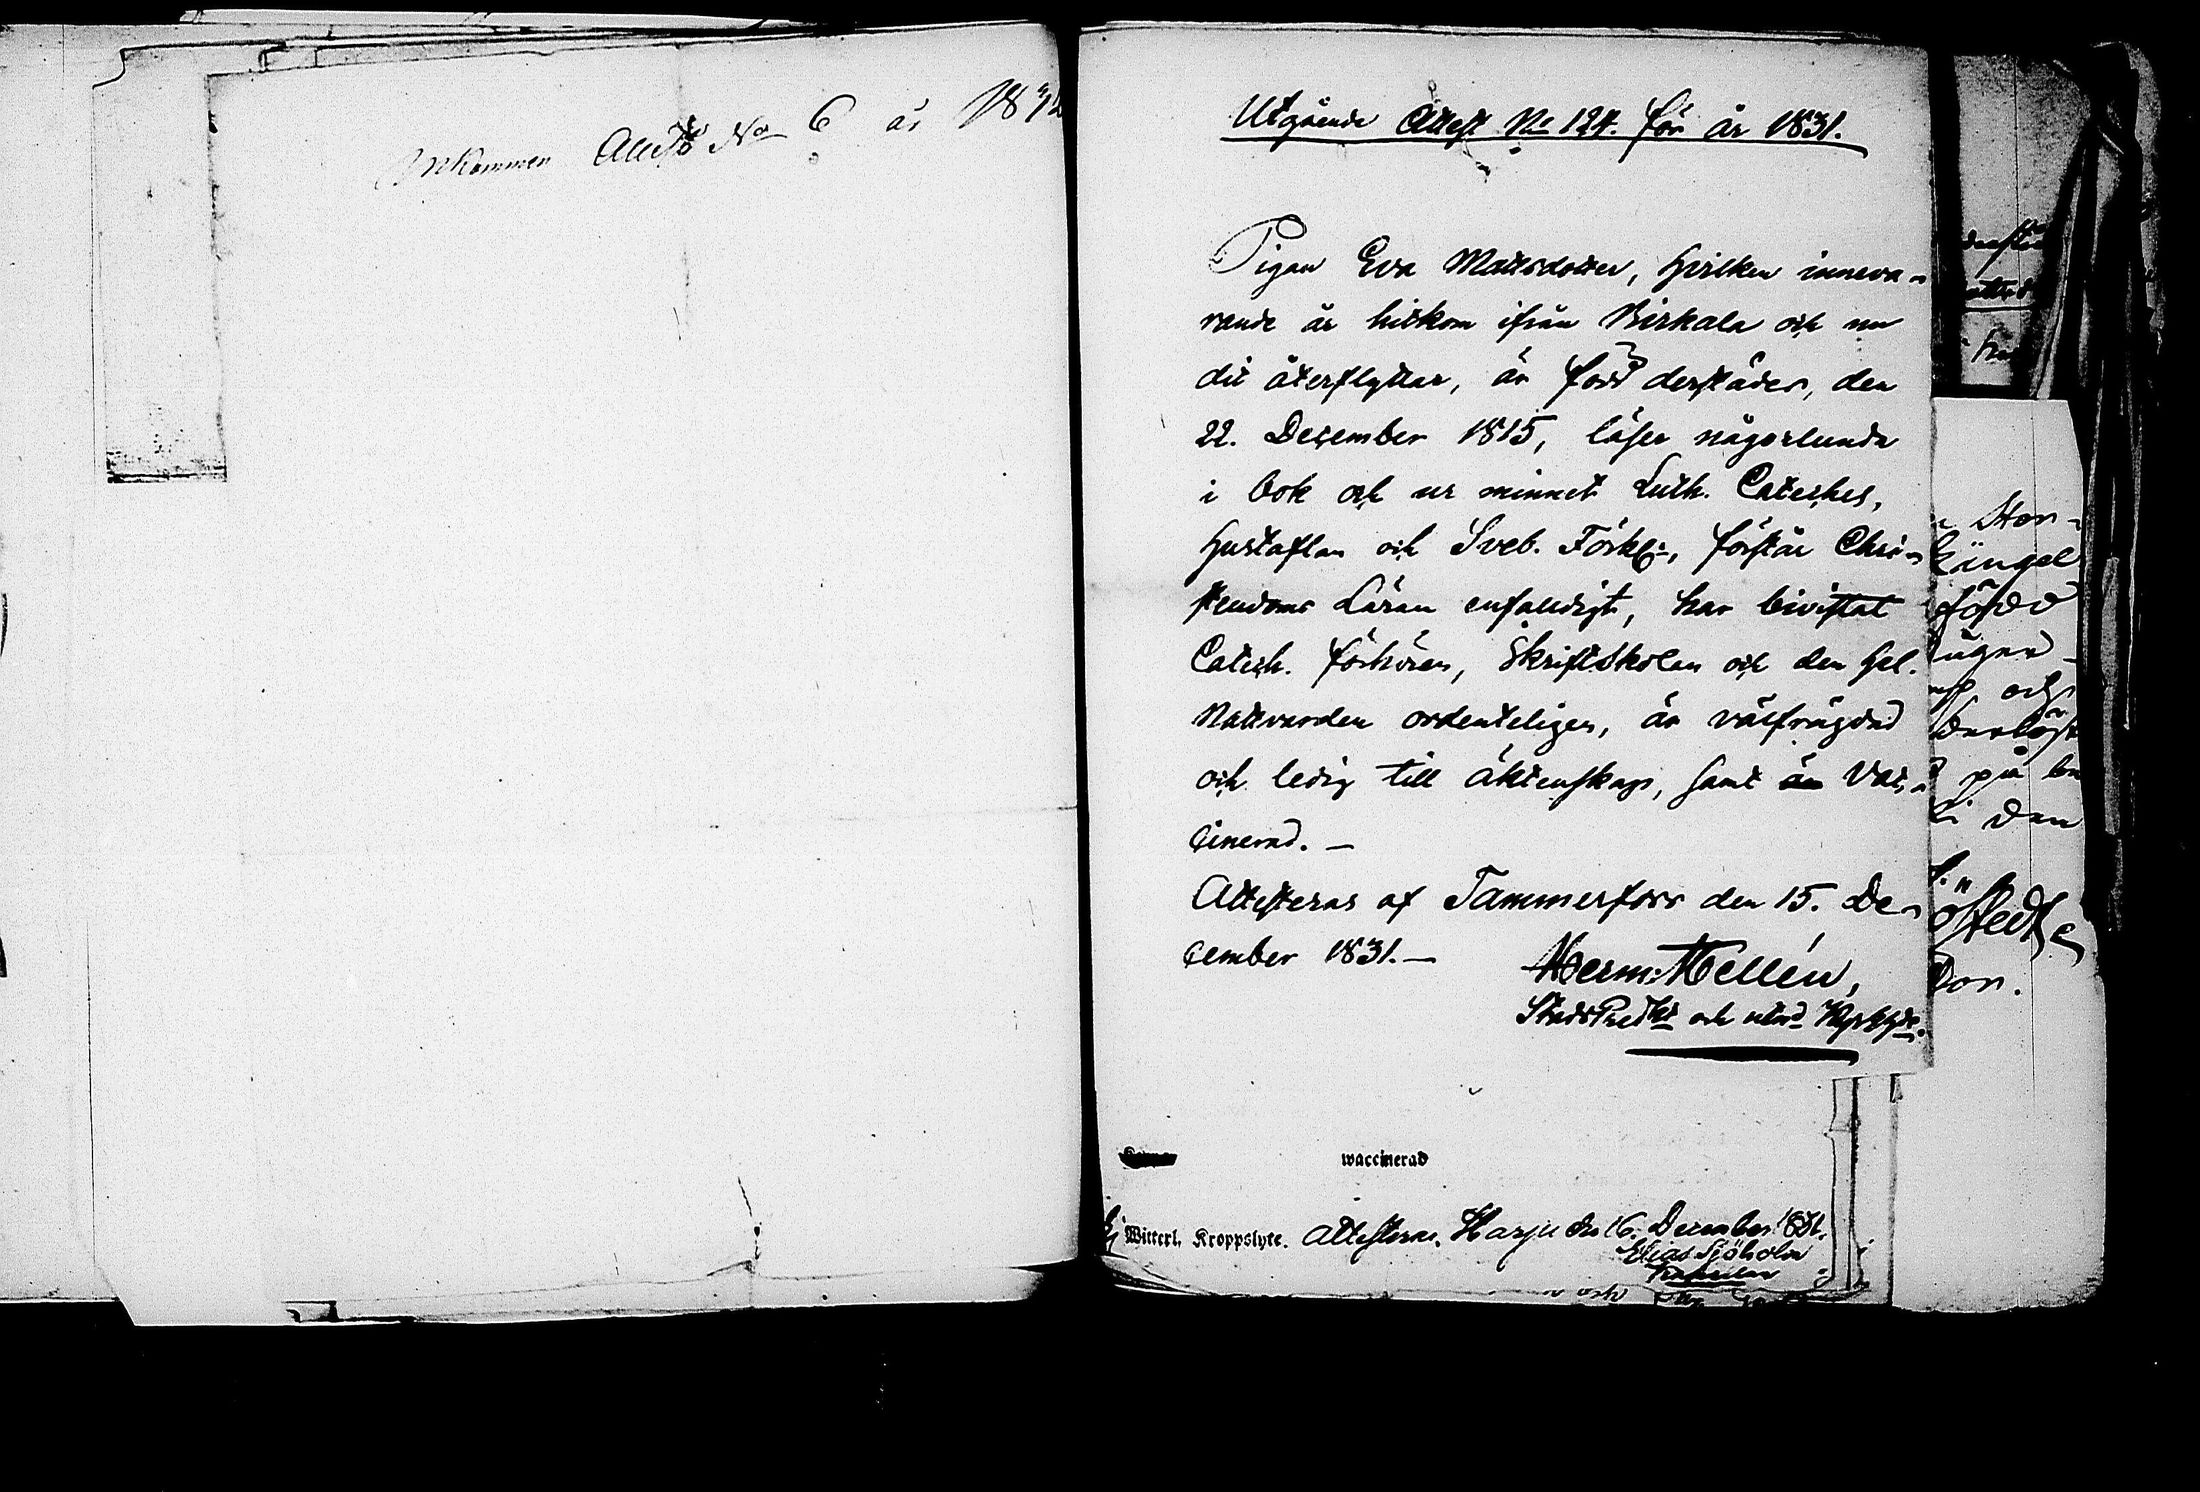 Inkommen Attest No 6 år 1832
Utgående Attest No 124. för år 1831.
Pigan Eva Mattsdotter, hvilken inneva-
rande år hitkom ifrån Birkala och nu
dit återflyttar, är född derstädes, den
22. December 1815, läser någorlunda
i bok och ur minnet Luth. Cateches,
Hustaflan och Sveb. Förkl:, förstår Chri-
stendoms Läran enfaldigt, har bivistat
Catech. förhören, Skriftskolan och den Hel.
Nattvarden ordenteligen, är välfrägdad
och ledig till äktenskap, samt är Vac-
cinerad. —
Attesteras af Tammerfors den 15. De-
cember 1831. —
Herm: Hellén,
StadsPred
waccinerad
Ej Witterl. Kroppslyte. Attesteras. Harju den 16. December 1831.
Elias Sjöholm
och
Stor-
född
och
på
den